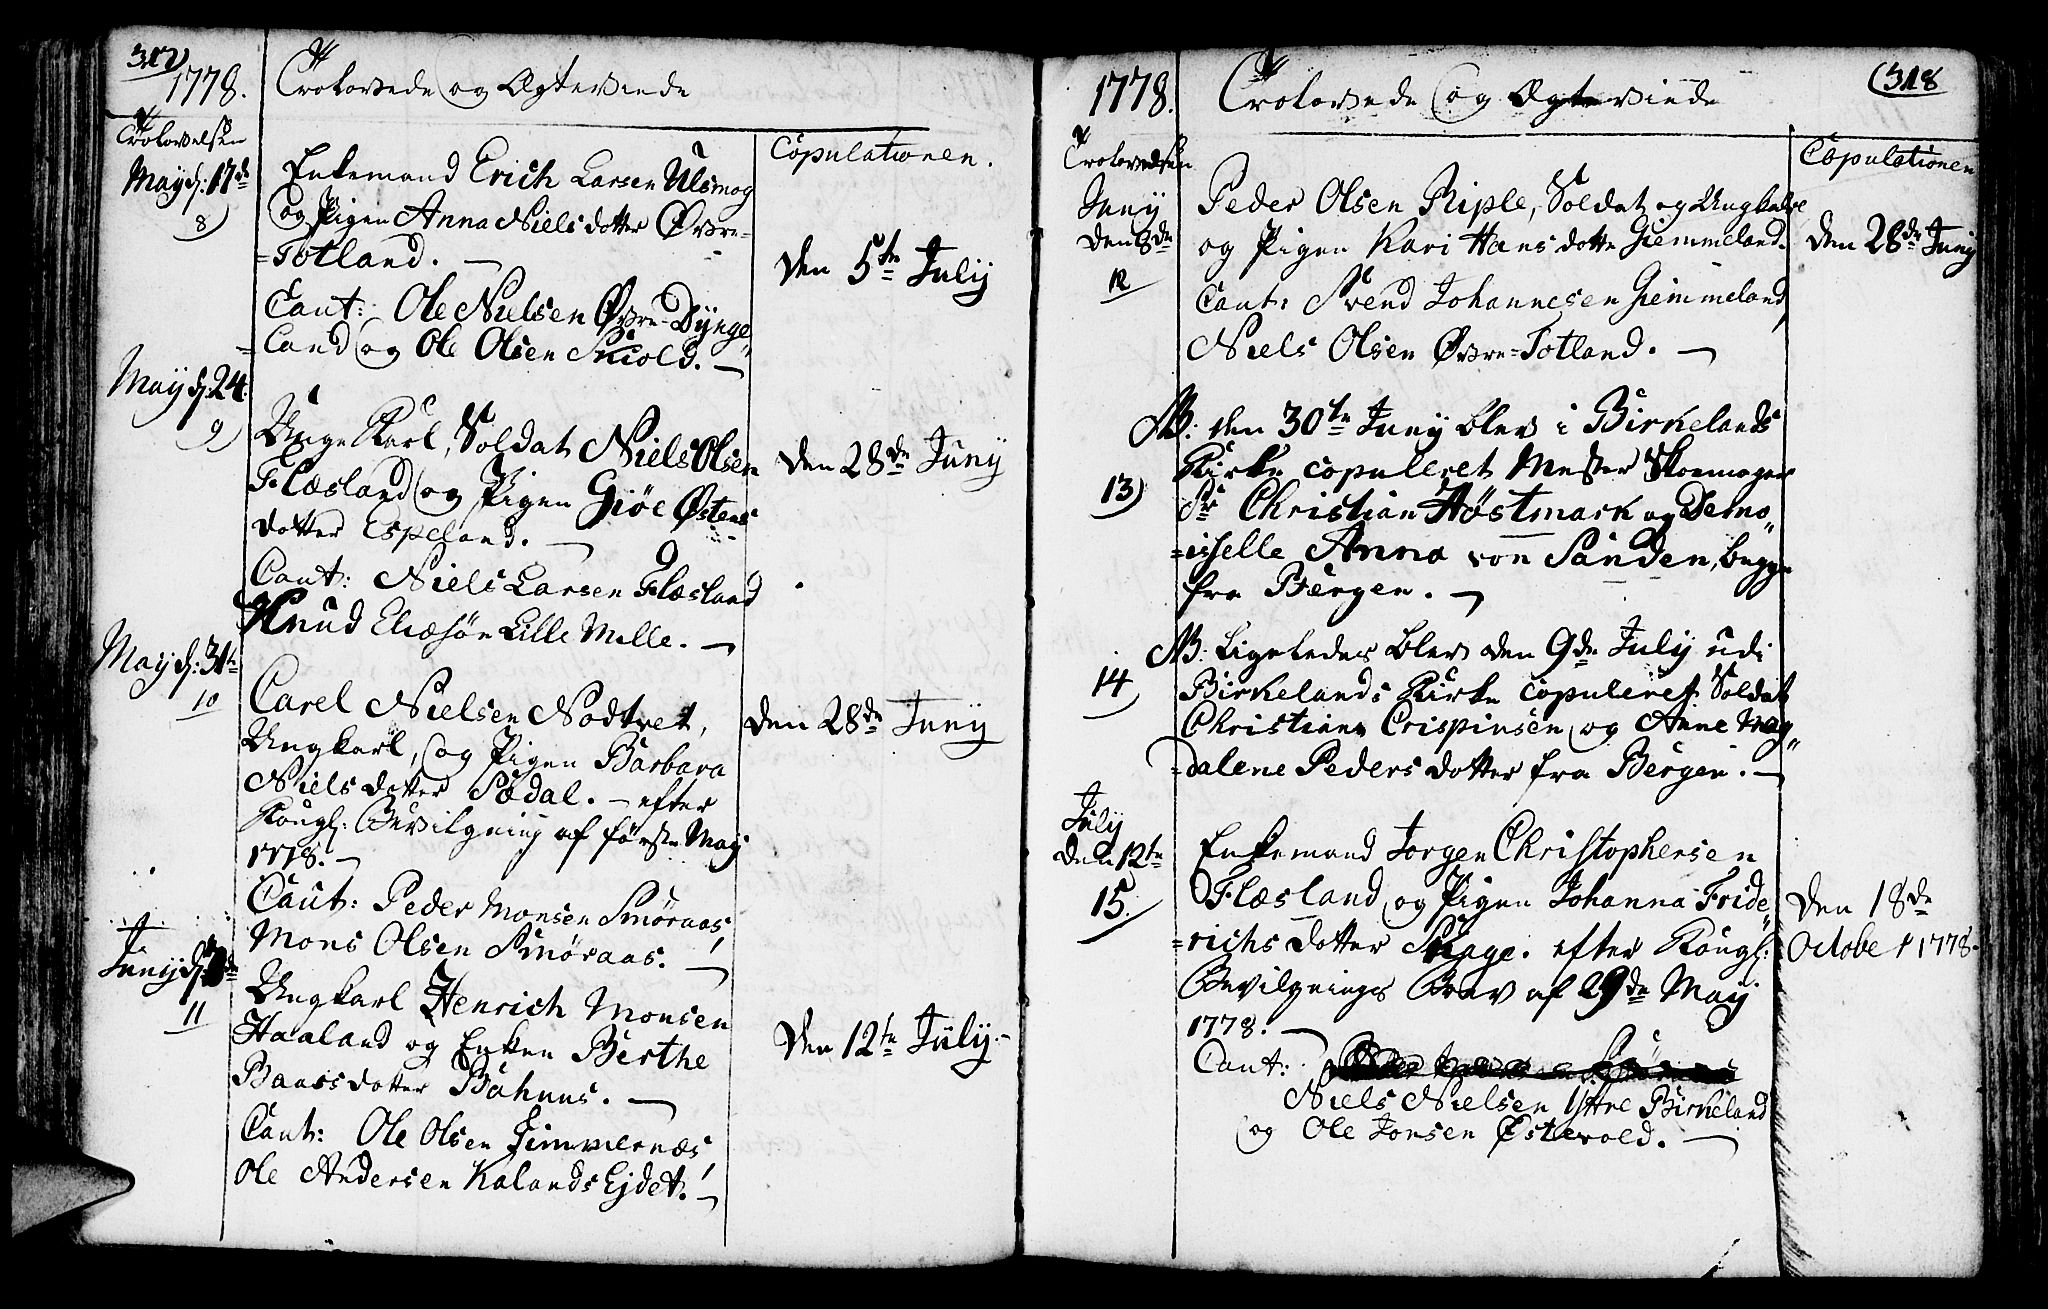 317)
1778.
Trolovede og Ægteviede
Trolovelsen
Copulationen.
Maÿ d: 17de
8)
Enkemand Erich Larsen Ulsmog
og Pigen Anna Niels dotter Øvre-
=Totland. —
Den 5te Julÿ
Caut: Ole Nielsen Øvre-Dÿnge„
=land og Ole Olsen Skiold. —
Maÿ d: 24.
9)
Unge Karl, Soldat Niels Olsen
Flæsland og Pigen Giøe Østens
dotter Espeland. —
Den 28de Junÿ
Caut: Niels Larsen Flæsland
Knud Eliæsøn Lille Milde. —
Maÿ d: 31te
10
Carel Nielsen Nodtvet,
Ungkarl, og Pigen Barbara
Niels dotter Sædal. — efter
Kongl: Bevilgning af første Maÿ
1778. —
Den 28de Junÿ
Caut: Peder Monsen Smøraas,
Mons Olsen Smøraas. —
Junÿ d:
11
Ungkarl Henrich Monsen
Haaland og Enken Berthe
Baars dotter Bahuus. —
Den 12te Julÿ. —
Caut: Ole Olsen Simmernæs,
Ole Andersen Kalands Ejdet. —
1778.
Trolovede og Ægteviede
(318
Trolovelsen
Copulationen
Junÿ
den 8de
12
Peder Olsen Riple, Soldat og Ungkarl
og Pigen Kari Hans dotter Giemmeland.
Den 28de Junÿ
Caut: Svend Johannesen Giemmeland,
Niels Olsen Øvre=Totland. —
13)
NB: den 30te Junÿ blev i Birkelands
Kirke copuleret Mester Skoemager
Sr Christian Høstmark og Demo„
=iselle Anna von Sanden, begge
fra Bergen. —
14
NB: Ligeledes blev den 9de Julÿ udi
Birkelands Kirke copuleret Soldat
Christian Crispinsen og Anne Mag„
=dalene Peders dotter fra Bergen. —
Julÿ
den 12te
15.
Enkemand Jorgen Christophersen
Flæsland og Pigen Johanna Fride„
=richs dotter Skage. efter Kongl:
Bevilgnings Brev af 29de Maÿ
1778. —
Den 18de
Octobr 1778.
Caut:
Niels Nielsen Ÿttre Birkeland
og Ole Jonsen Østevold. —